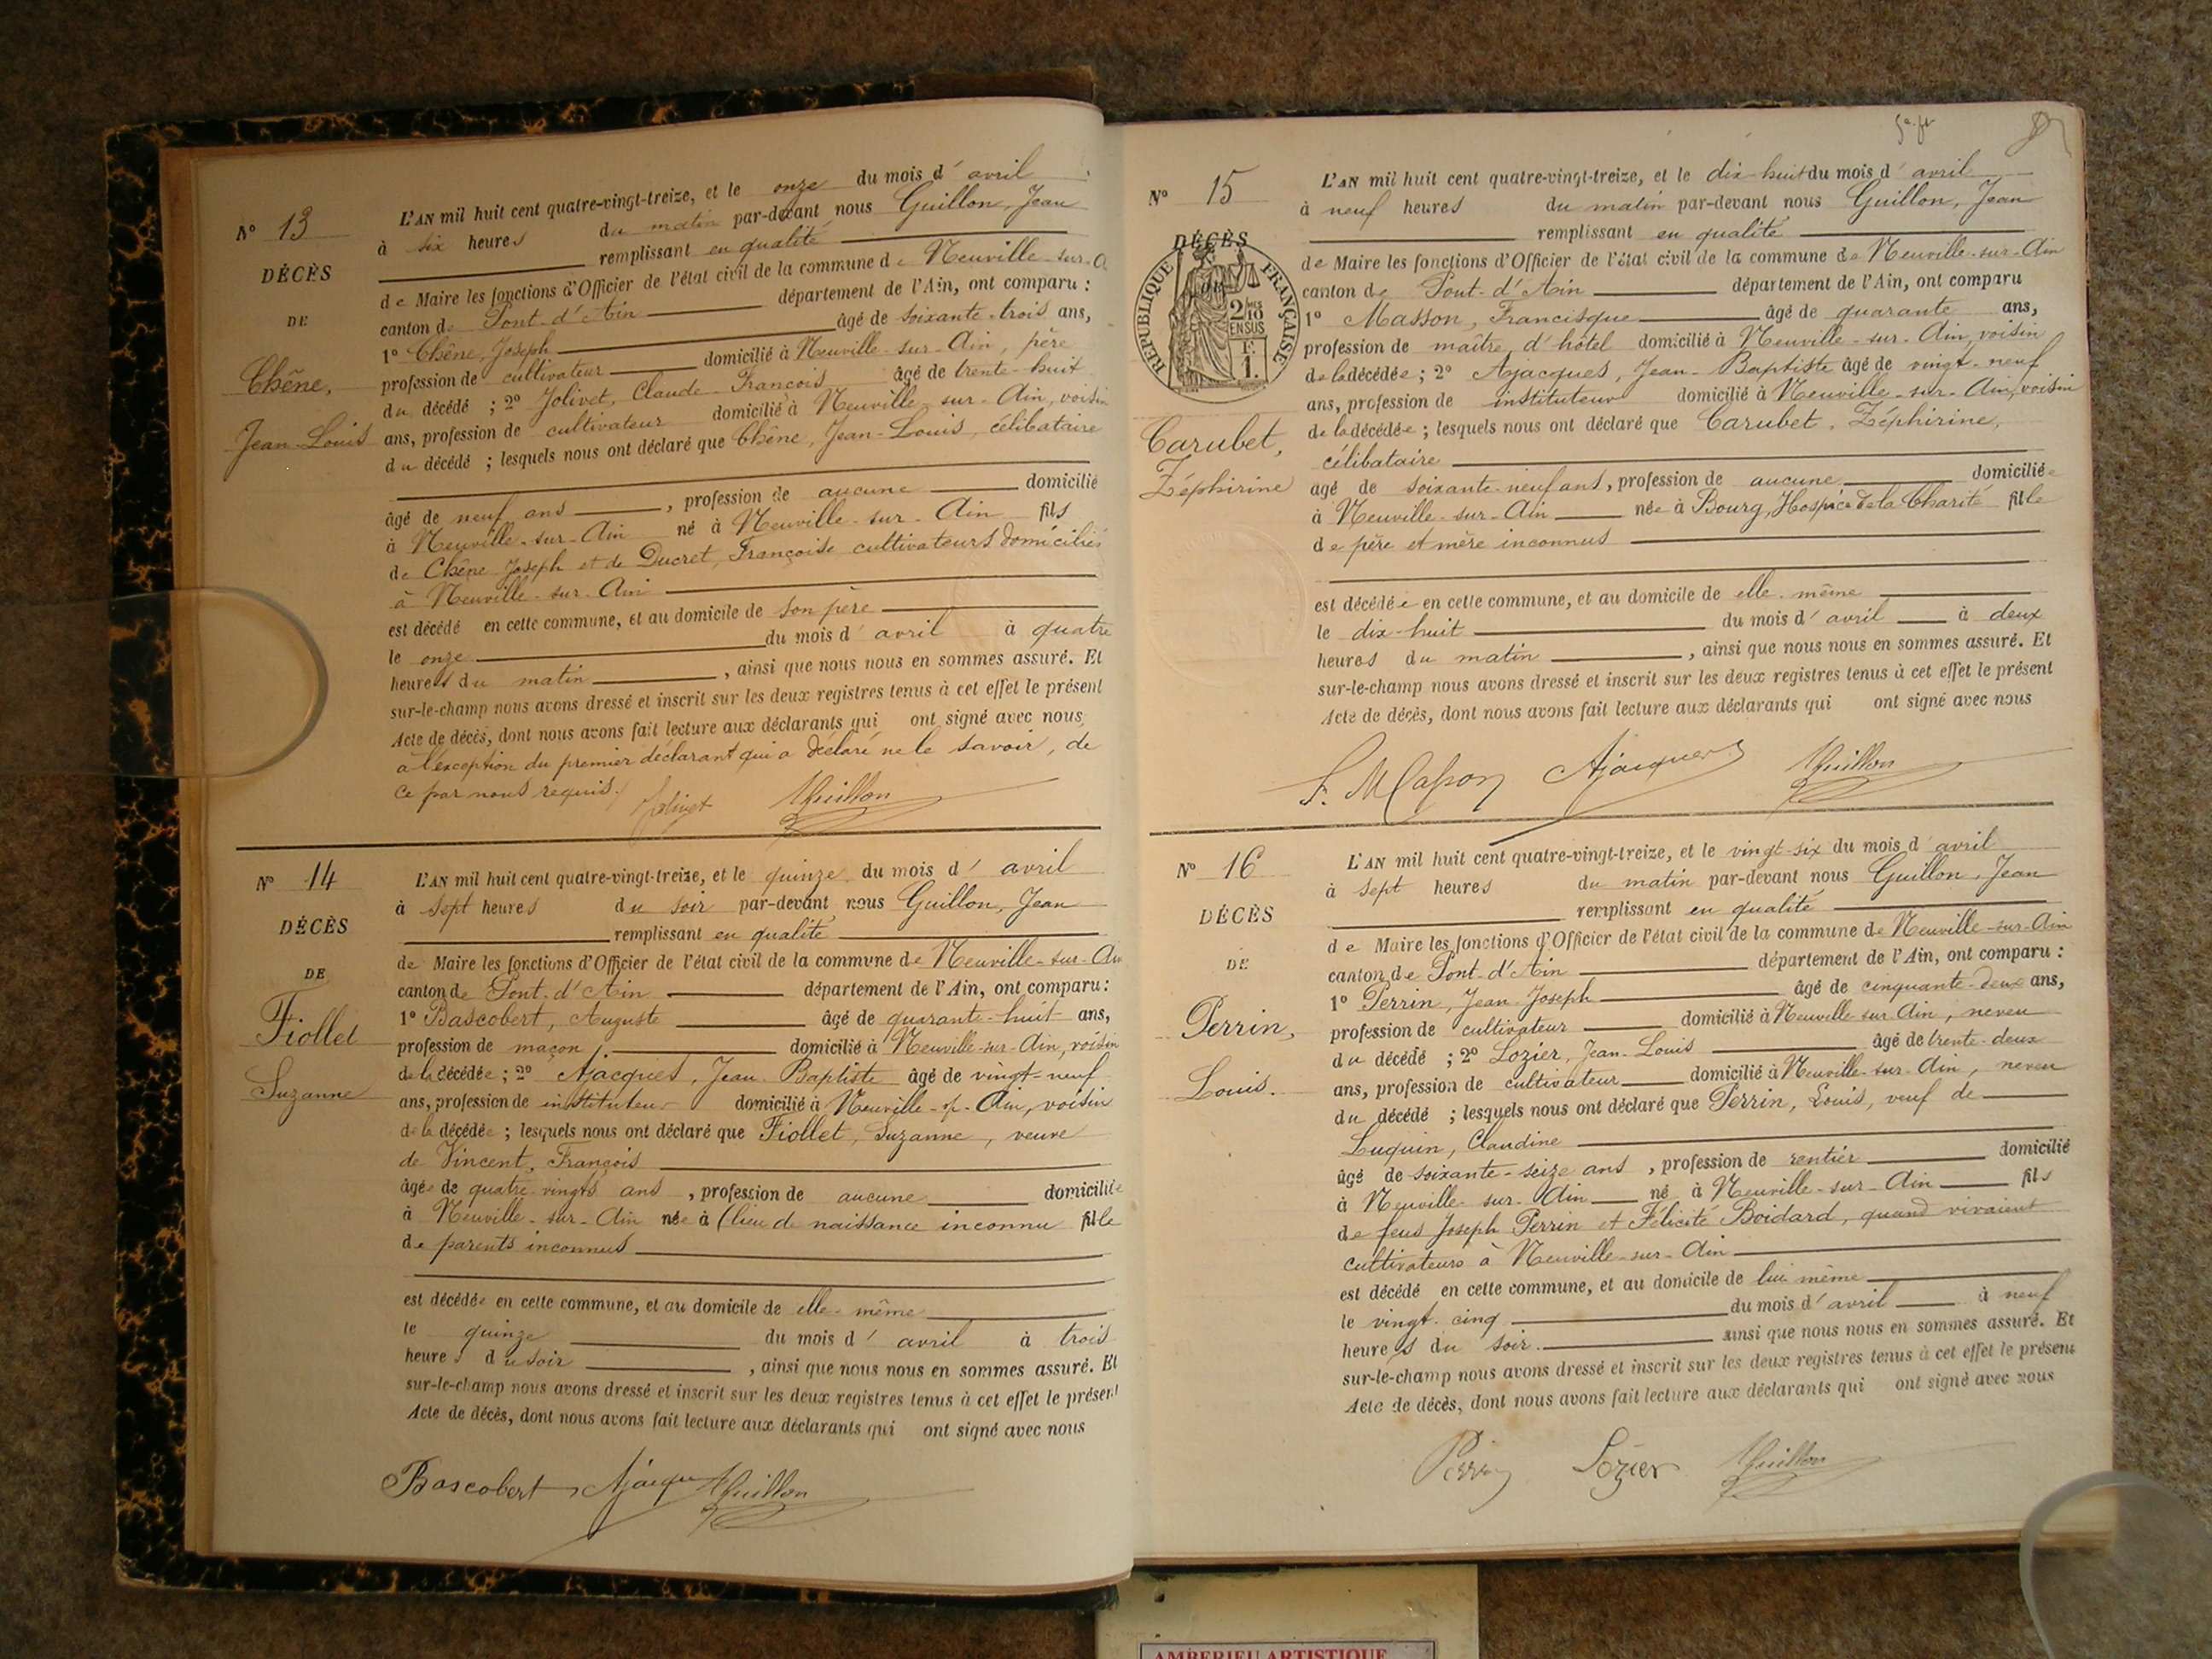 N° 13
DÉCÈS
DE
Chêne,
Jean-Louis
L'AN mil huit cent quatre-vingt-treize, et le onze du mois d'avril
à six heures du matin par-devant nous Guillon, Jean
remplissant en qualité
de Maire les fonctions d'Officier de l'état civil de la commune de Neuville-sur-A
canton de Pont-d'Ain département de l'Ain, ont comparu :
1° Chêne, Joseph âgé de soixante-trois ans,
profession de cultivateur domicilié à Neuville-sur-Ain, père
du décédé ; 2° Jolivet, Claude-François âgé de trente-huit
ans, profession de cultivateur domicilié à Neuville-sur-Ain, voisin
du décédé ; lesquels nous ont déclaré que Chêne, Jean-Louis, célibataire
âgé de neuf ans, profession de aucune domicilié
à Neuville-sur-Ain né à Neuville-sur-Ain fils
de Chêne Joseph et de Ducret, Françoise cultivateurs domiciliés
à Neuville-sur-Ain
est décédé en cette commune, et au domicile de son père
le onze du mois d'avril à quatre
heures du matin, ainsi que nous nous en sommes assuré. Et
sur-le-champ nous avons dressé et inscrit sur les deux registres tenus à cet effet le présent
Acte de décès, dont nous avons fait lecture aux déclarants qui ont signé avec nous
à l'exception du premier déclarant qui a déclaré ne le savoir, de
ce par nous requis.
Jolivet Guillon
N° 14
DÉCÈS
DE
Fiollet
Suzanne
L'AN mil huit cent quatre-vingt-treize, et le quinze du mois d'avril
à sept heures du soir par-devant nous Guillon, Jean
remplissant en qualité
de Maire les fonctions d'Officier de l'état civil de la commune de Neuville-sur-Ain
canton de Pont-d'Ain département de l'Ain, ont comparu :
1° Bascobert, Auguste âgé de quarante-huit ans,
profession de maçon domicilié à Neuville-sur-Ain, voisin
de la décédée ; 2° Ajacques, Jean Baptiste âgé de vingt-neuf
ans, profession de instituteur domicilié à Neuville-s-Ain, voisin
de la décédée ; lesquels nous ont déclaré que Fiollet, Suzanne, veuve
de Vincent, François
âgée de quatre-vingts ans, profession de aucune domiciliée
à Neuville-sur-Ain née à (lieu de naissance inconnu fille
de parents inconnus
est décédée en cette commune, et au domicile de elle-même
le quinze du mois d'avril à trois
heures du soir, ainsi que nous nous en sommes assuré. Et
sur-le-champ nous avons dressé et inscrit sur les deux registres tenus à cet effet le présent
Acte de décès, dont nous avons fait lecture aux déclarants qui ont signé avec nous
Bascobert Ajacques Guillon
N° 15
DÉCÈS
RÉPUBLIQUE FRANÇAISE
2/10 EN SUS
F.
1.
Carubet,
Zéphirine
L'AN mil huit cent quatre-vingt-treize, et le dix-huit du mois d'avril
à neuf heures du matin par-devant nous Guillon, Jean
remplissant en qualité
de Maire les fonctions d'Officier de l'état civil de la commune de Neuville-sur-Ain
canton de Pont-d'Ain département de l'Ain, ont comparu
1° Masson, Francisque âgé de quarante ans,
profession de maître d'hôtel domicilié à Neuville-sur-Ain, voisin
de la décédée ; 2° Ajacques, Jean-Baptiste âgé de vingt-neuf
ans, profession de instituteur domicilié à Neuville-sur-Ain, voisin
de la décédée ; lesquels nous ont déclaré que Carubet, Zéphirine,
célibataire
âgé de soixante-neuf ans, profession de aucune domiciliée
à Neuville-sur-Ain née à Bourg, Hospice de la Charité fille
de père et mère inconnus
est décédée en cette commune, et au domicile de elle-même
le dix-huit du mois d'avril à deux
heures du matin, ainsi que nous nous en sommes assuré. Et
sur-le-champ nous avons dressé et inscrit sur les deux registres tenus à cet effet le présent
Acte de décès, dont nous avons fait lecture aux déclarants qui ont signé avec nous
F. Masson Ajacques Guillon
N° 16
DÉCÈS
DE
Perrin,
Louis.
L'AN mil huit cent quatre-vingt-treize, et le vingt-six du mois d'avril
à sept heures du matin par-devant nous Guillon, Jean
remplissant en qualité
de Maire les fonctions d'Officier de l'état civil de la commune de Neuville-sur-Ain
canton de Pont-d'Ain département de l'Ain, ont comparu :
1° Perrin, Jean-Joseph âgé de cinquante-deux ans,
profession de cultivateur domicilié à Neuville-sur-Ain, neveu
du décédé ; 2° Lozier, Jean-Louis âgé de trente-deux
ans, profession de cultivateur domicilié à Neuville-sur-Ain, neveu
du décédé ; lesquels nous ont déclaré que Perrin, Louis, veuf de
Luquin, Claudine
âgé de soixante-seize ans, profession de rentier domicilié
à Neuville-sur-Ain né à Neuville-sur-Ain fils
de feus Joseph Perrin et Félicité Boidard, quand vivaient
cultivateurs à Neuville-sur-Ain
est décédé en cette commune, et au domicile de lui-même
le vingt-cinq du mois d'avril à neuf
heures du soir. ainsi que nous nous en sommes assuré. Et
sur-le-champ nous avons dressé et inscrit sur les deux registres tenus à cet effet le présent
Acte de décès, dont nous avons fait lecture aux déclarants qui ont signé avec nous
Perrin Lozier Guillon
AMBERIEU ARTISTIQUE